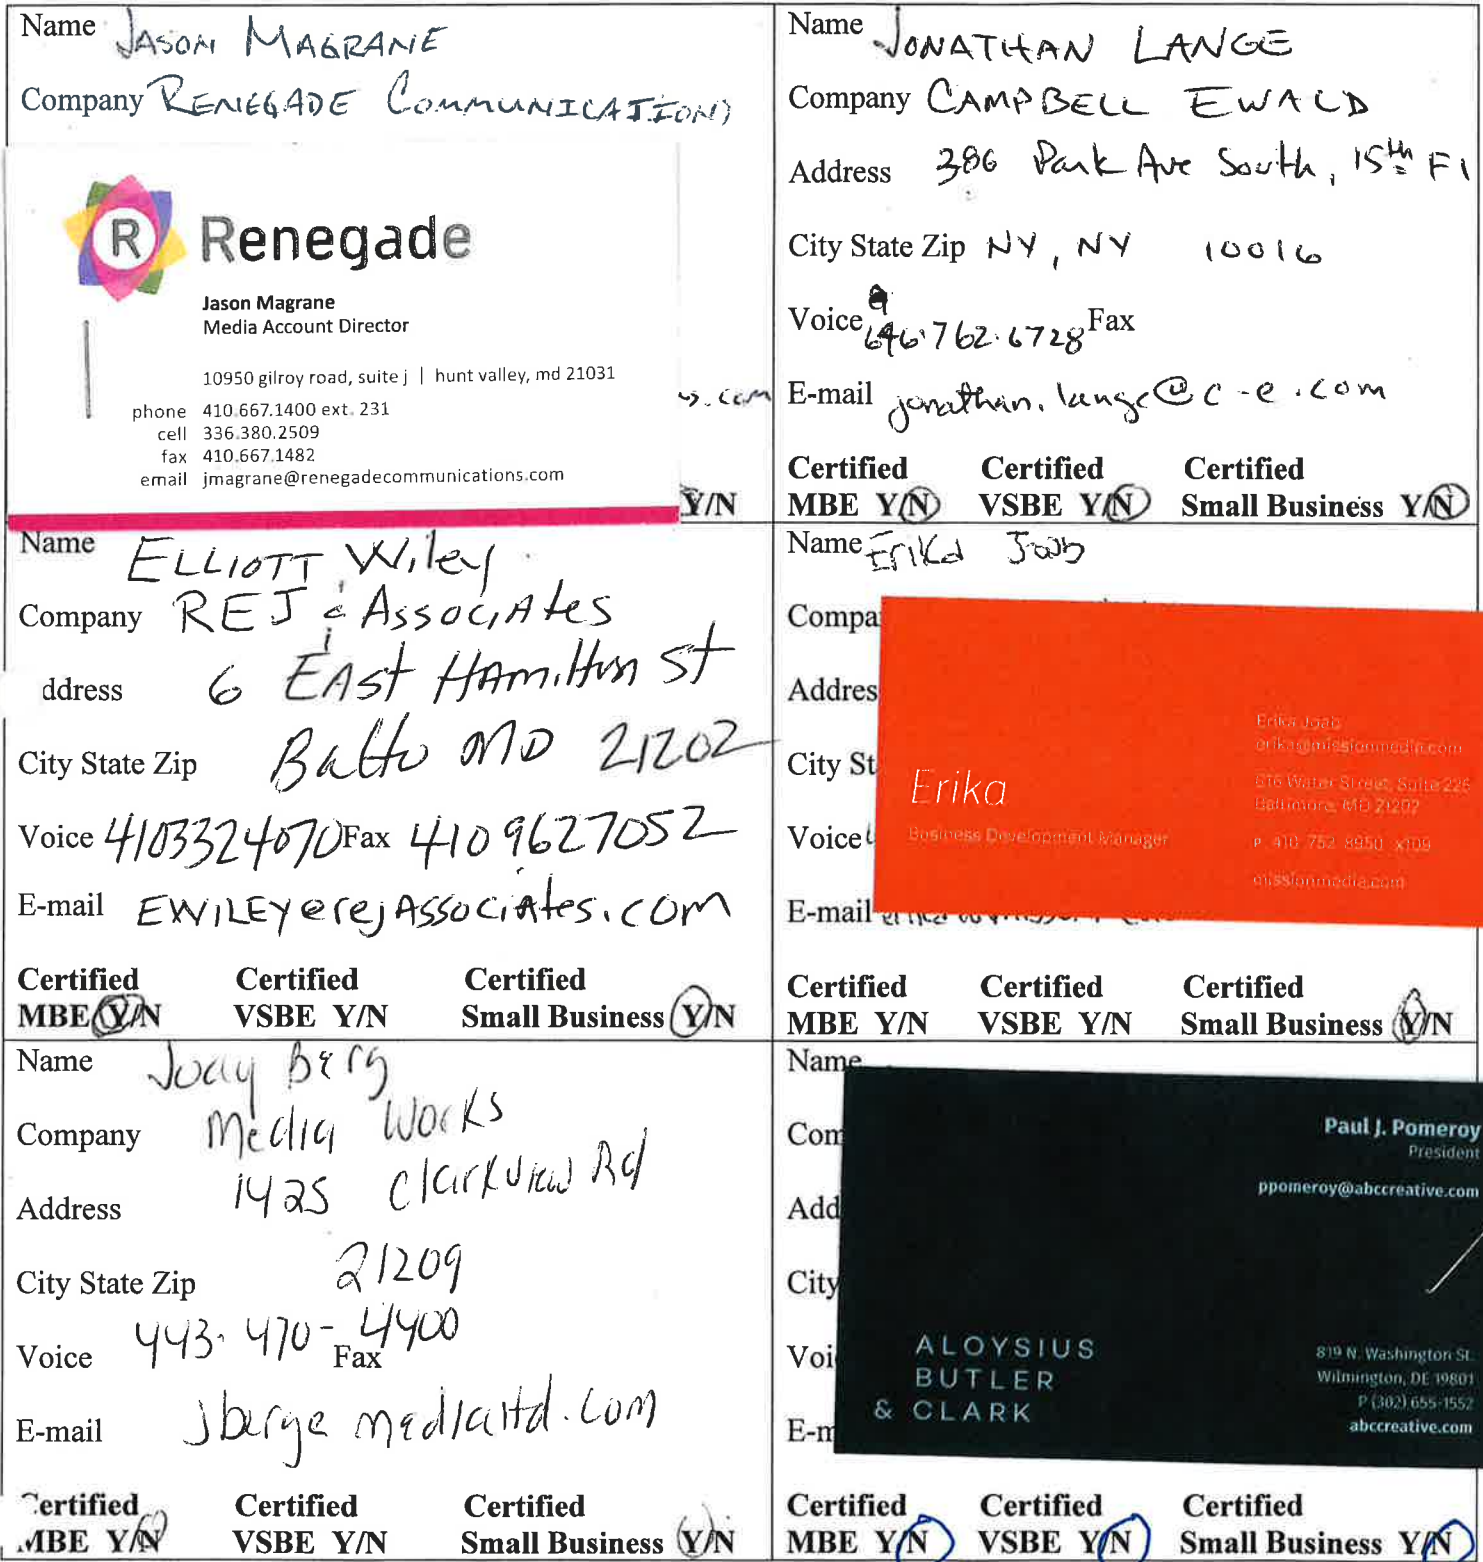 Name JASON MAGRANE
Company RENEGADE COMMUNICATIONS
R Renegade
Jason Magrane
Media Account Director
10950 gilroy road, suite j | hunt valley, md 21031
phone 410.667.1400 ext. 231
cell 336.380.2509
fax 410.667.1482
email jmagrane@renegadecommunications.com
s.com
Y/N
Name JONATHAN LANGE
Company CAMPBELL EWALD
Address 386 Park Ave South, 15th Fl
City State Zip NY, NY 10016
Voice 646.762.6728 Fax
E-mail jonathan.lange@c-e.com
Certified Certified Certified
MBE Y/N VSBE Y/N Small Business Y/N
Name ELLIOTT Wiley
Company REJ & Associates
ddress 6 EAst HAmilton St
City State Zip Balto MD 21202
Voice 4103324070 Fax 4109627052
E-mail EWILEY@rejAssociAtes.com
Certified Certified Certified
MBE Y/N VSBE Y/N Small Business Y/N
Name Erika Joab
Compa
Addres
City St
Voice
E-mail
Erika
Business Development Manager
Erika Joab
erika@missionmedia.com
616 Water Street, Suite 225
Baltimore, MD 21202
P 410 752 8950 x109
missionmedia.com
Certified Certified Certified
MBE Y/N VSBE Y/N Small Business Y/N
Name Jody Berg
Company Media Works
Address 1425 Clarkview Rd
City State Zip 21209
Voice 443-470-4400 Fax
E-mail jberg@medialtd.com
Certified Certified Certified
MBE Y/N VSBE Y/N Small Business Y/N
Name
Com
Add
City
Voi
E-m
Paul J. Pomeroy
President
ppomeroy@abccreative.com
ALOYSIUS
BUTLER
& CLARK
819 N. Washington St.
Wilmington, DE 19801
P (302) 655-1552
abccreative.com
Certified Certified Certified
MBE Y/N VSBE Y/N Small Business Y/N